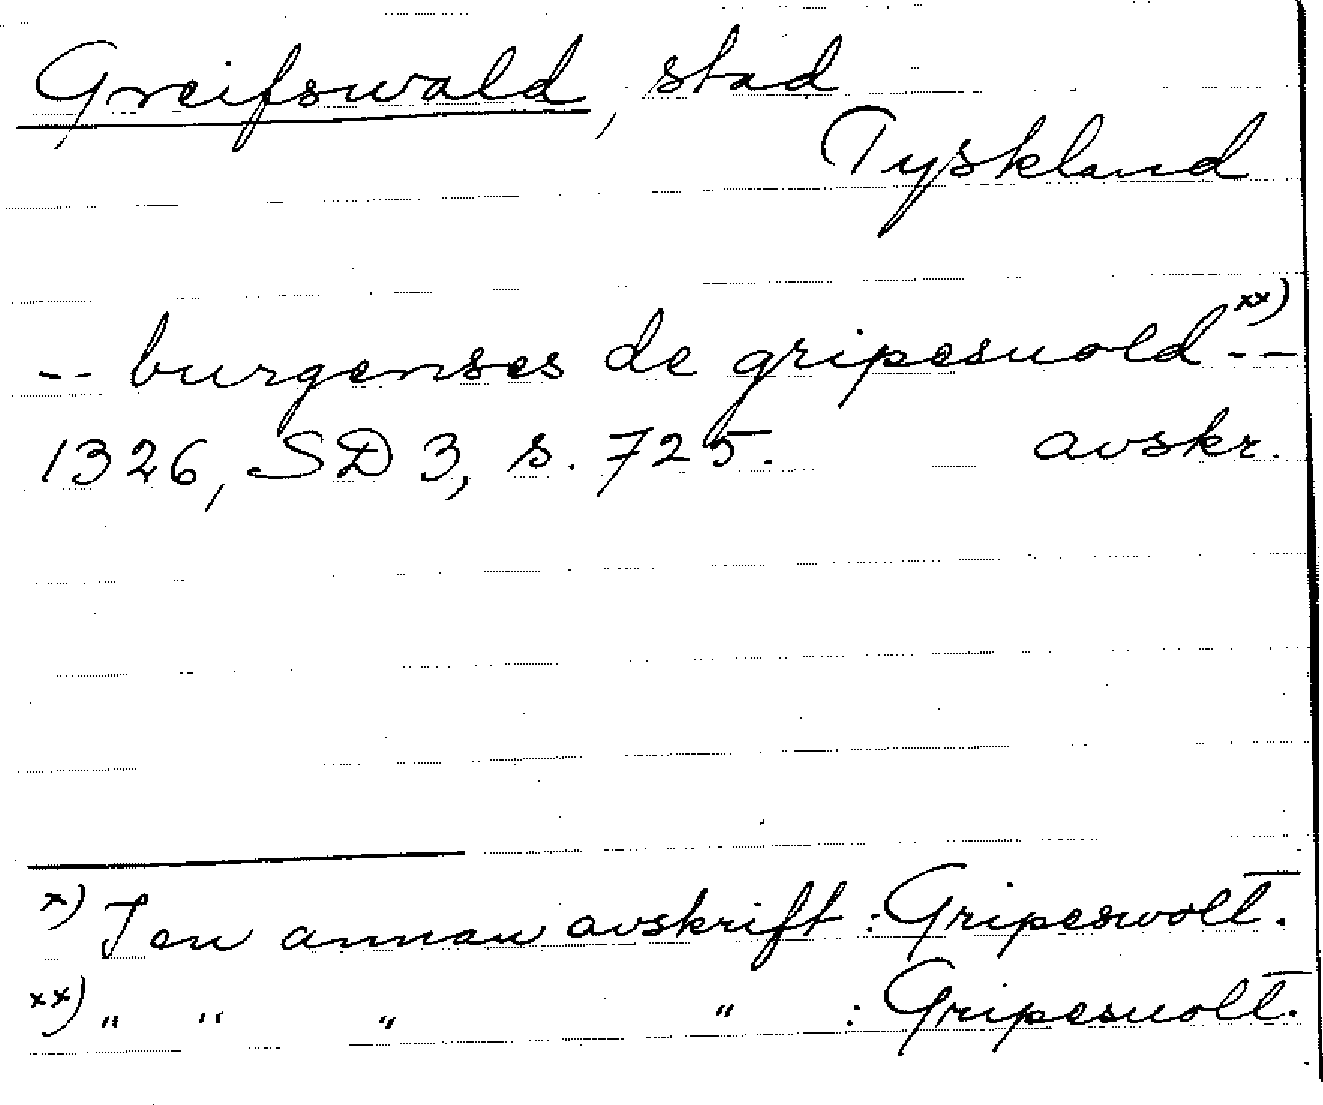 Greifswald, stad
Tyskland
-- burgenses de gripesuold xx) --
1326, SD 3, s. 725. avskr.
x) I en annan avskrift : Gripeswolt.
xx) " " " " : Gripesuolt.